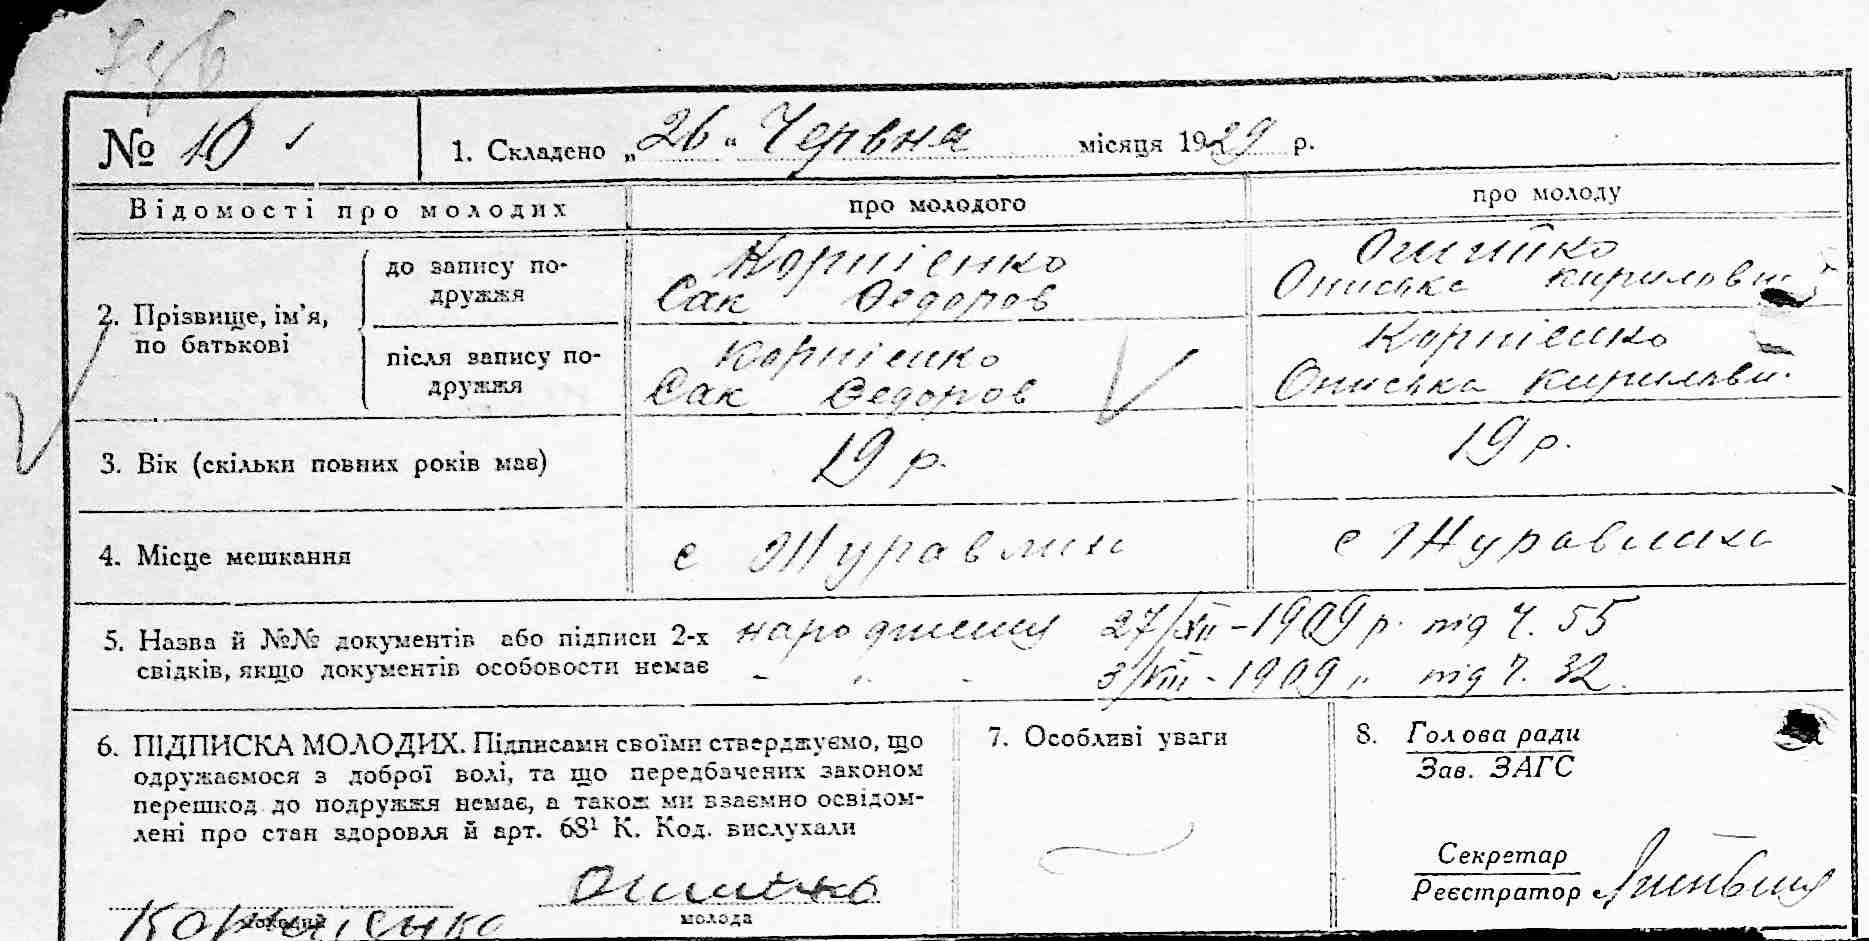 № 10
1. Складено „26" Червня місяця 1929 р.
Відомості про молодих
про молодого
про молоду
2. Прізвище, ім'я,
по батькові
до запису по-
дружжя
Корнієнко
Сак Федоров
Ониська Кириловн
після запису по-
дружжя
Корнієнко
Сак Федоров
Корнієнко
Ониська Кирилови.
3. Вік (скільки повних років має)
19 р.
19 р.
4. Місце мешкання
с Журавлиха
с Журавлиха
5. Назва й №№ документів або підписи 2-х
свідків, якщо документів особовости немає
народження 27/XII - 1909 р. під Ч. 55
3/VIII - 1909 „ під Ч. 32.
6. ПІДПИСКА МОЛОДИХ. Підписами своїми стверджуємо, що
одружаємося з доброї волі, та що передбачених законом
перешкод до подружжя немає, а також ми взаємно освідом-
лені про стан здоровля й арт. 68¹ К. Код. вислухали
Корнієнко
молодий
молода
7. Особливі уваги
8. Голова ради
Зав. ЗАГС
Секретар
Реєстратор